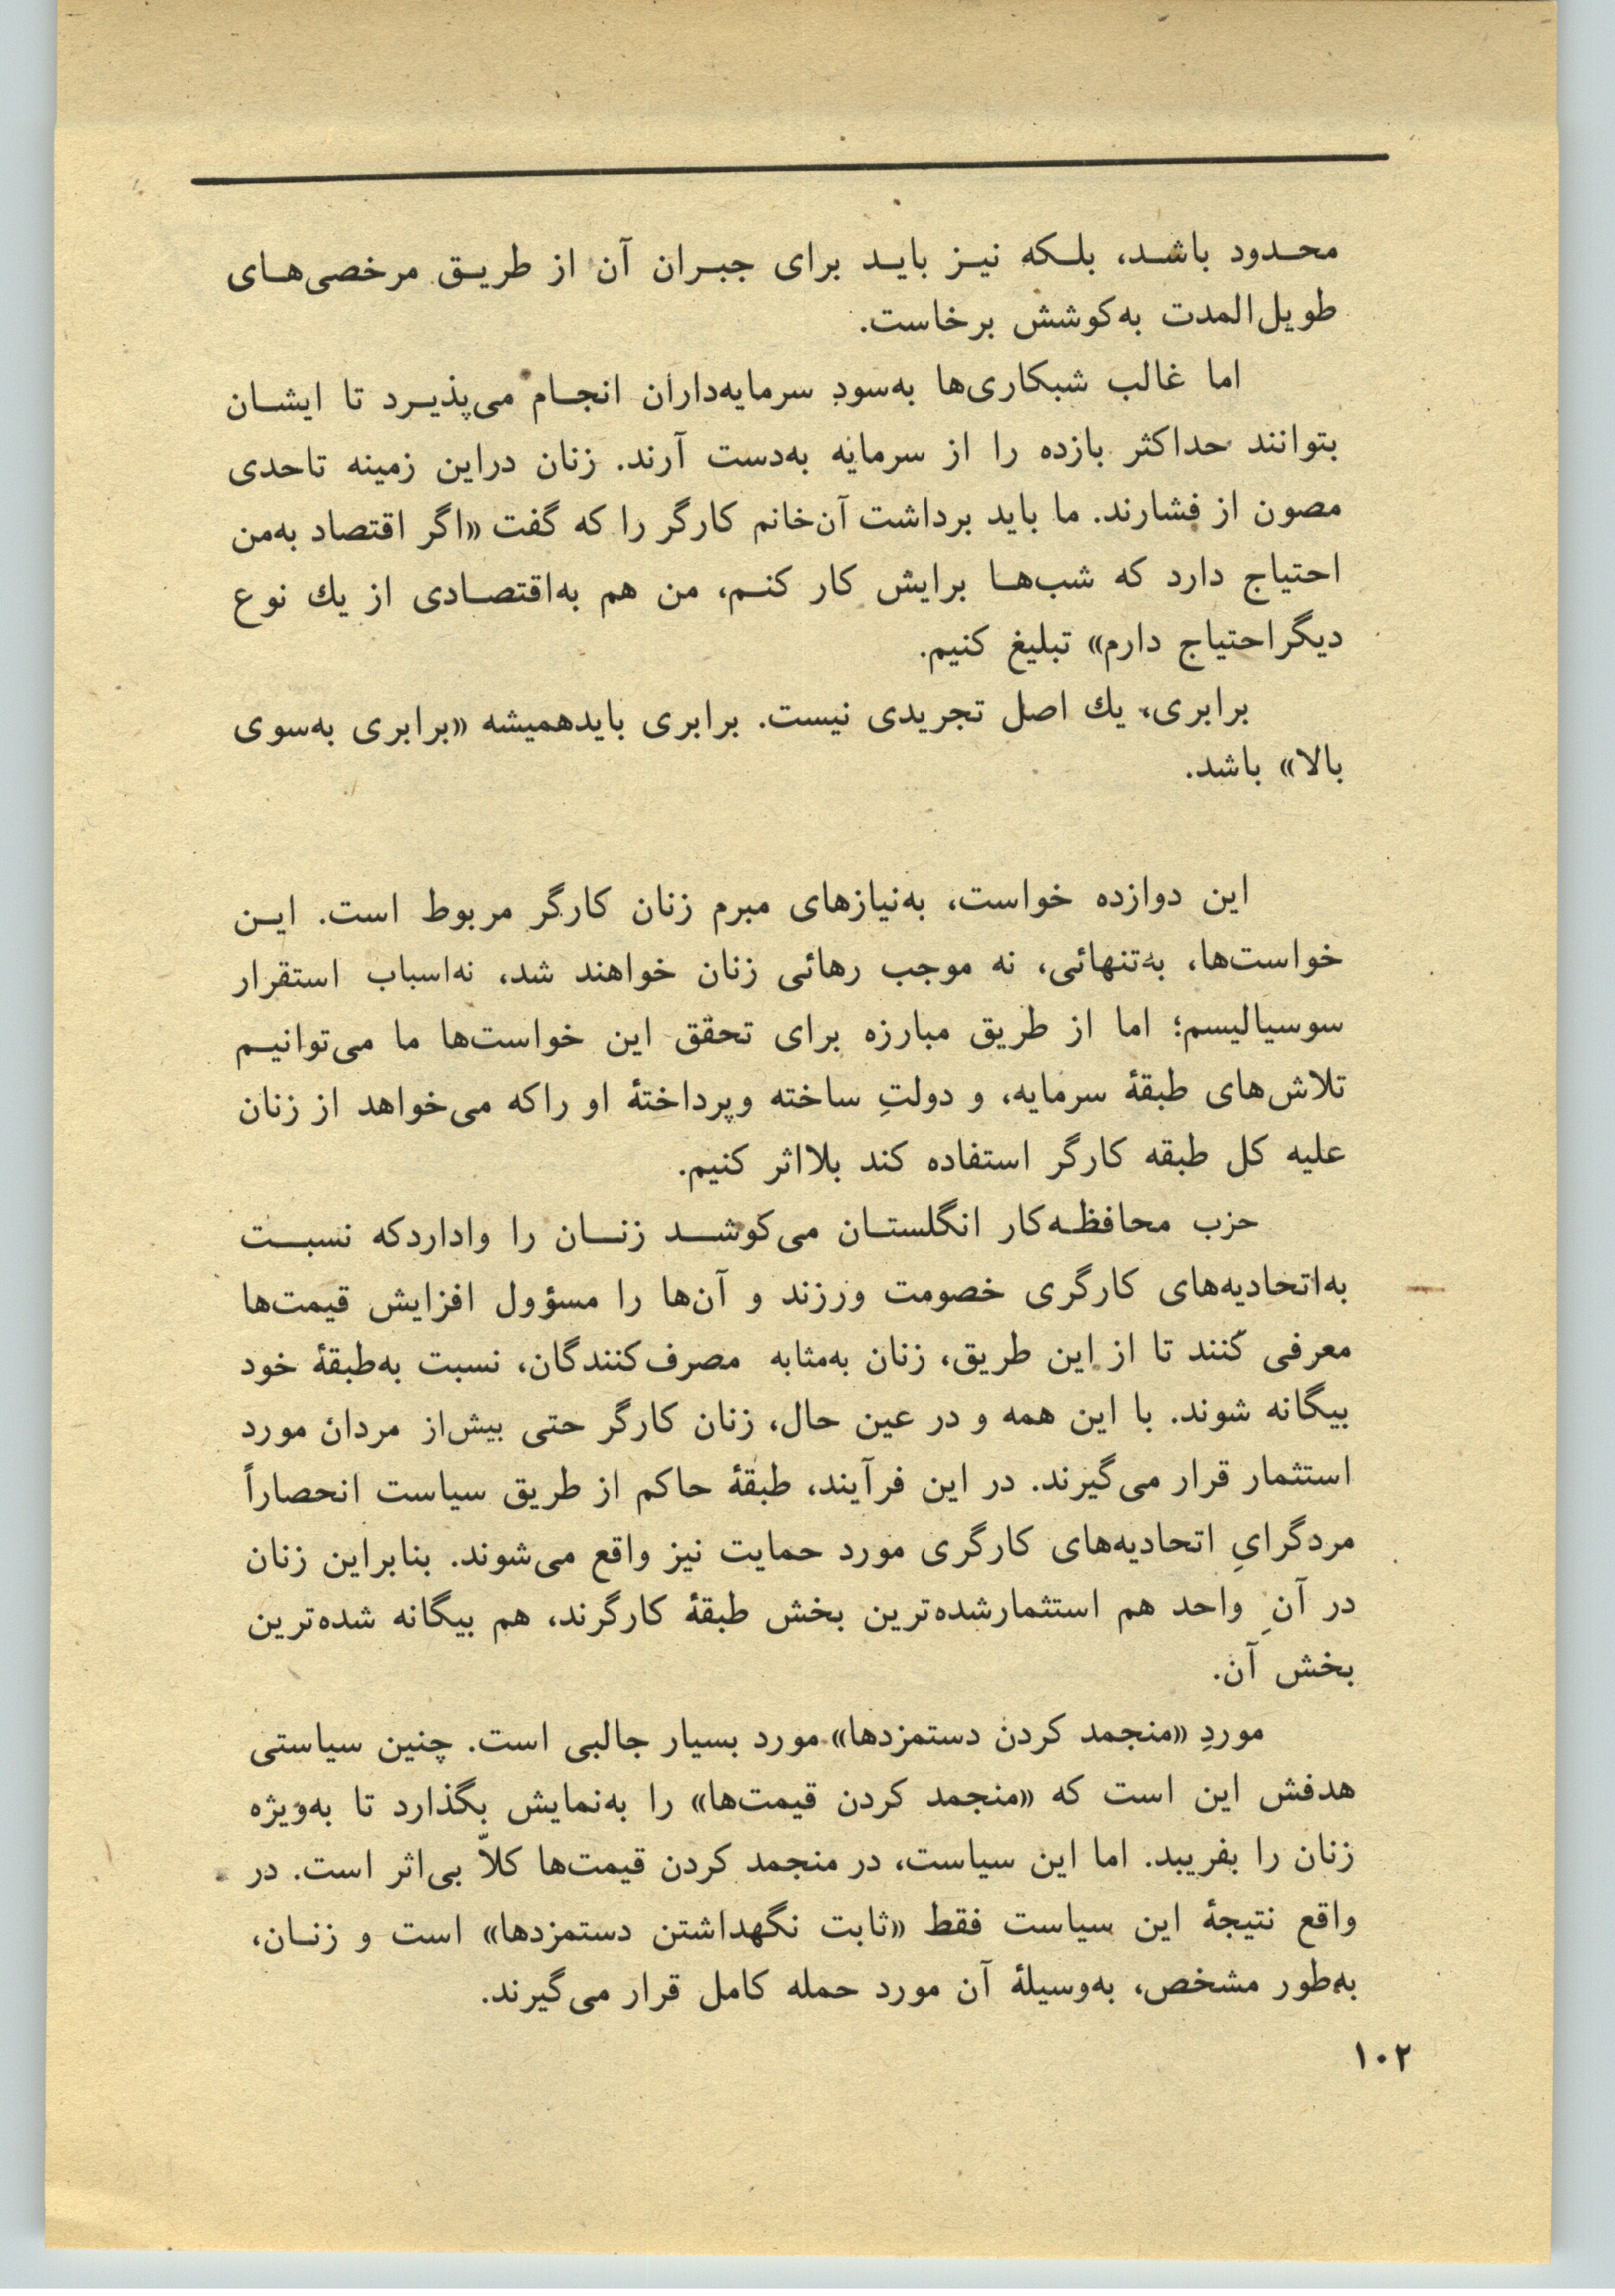 محدود باشد، بلکه نیز باید برای جبران آن از طریق مرخصی‌های
طویل‌المدت به‌کوشش برخاست.
اما غالب شبکاری‌ها به‌سودِ سرمایه‌داران انجام می‌پذیرد تا ایشان
بتوانند حداکثر بازده را از سرمایه به‌دست آرند. زنان دراین زمینه تاحدی
مصون از فشارند. ما باید برداشت آن‌خانم کارگر را که گفت «اگر اقتصاد به‌من
احتیاج دارد که شب‌ها برایش کار کنم، من هم به‌اقتصادی از یك نوع
دیگراحتیاج دارم» تبلیغ کنیم.
برابری، یك اصل تجریدی نیست. برابری بایدهمیشه «برابری به‌سوی
بالا» باشد.
این دوازده خواست، به‌نیازهای مبرم زنان کارگر مربوط است. این
خواست‌ها، به‌تنهائی، نه موجب رهائی زنان خواهند شد، نه‌اسباب استقرار
سوسیالیسم؛ اما از طریق مبارزه برای تحقق این خواست‌ها ما می‌توانیم
تلاش‌های طبقهٔ سرمایه، و دولتِ ساخته وپرداختهٔ او راکه می‌خواهد از زنان
علیه کل طبقه کارگر استفاده کند بلااثر کنیم.
حزب محافظه‌کار انگلستان می‌کوشد زنان را واداردکه نسبت
به‌اتحادیه‌های کارگری خصومت ورزند و آن‌ها را مسؤول افزایش قیمت‌ها
معرفی کنند تا از این طریق، زنان به‌مثابه مصرف‌کنندگان، نسبت به‌طبقهٔ خود
بیگانه شوند. با این همه و در عین حال، زنان کارگر حتی بیش‌از مردان مورد
استثمار قرار می‌گیرند. در این فرآیند، طبقهٔ حاکم از طریق سیاست انحصاراً
مردگرایِ اتحادیه‌های کارگری مورد حمایت نیز واقع می‌شوند. بنابراین زنان
در آنِ واحد هم استثمارشده‌ترین بخش طبقهٔ کارگرند، هم بیگانه شده‌ترین
بخش آن.
موردِ «منجمد کردن دستمزدها» مورد بسیار جالبی است. چنین سیاستی
هدفش این است که «منجمد کردن قیمت‌ها» را به‌نمایش بگذارد تا به‌ویژه
زنان را بفریبد. اما این سیاست، در منجمد کردن قیمت‌ها کلاّ بی‌اثر است. در
واقع نتیجهٔ این سیاست فقط «ثابت نگهداشتن دستمزدها» است و زنان،
به‌طور مشخص، به‌وسیلهٔ آن مورد حمله کامل قرار می‌گیرند.
۱۰۲